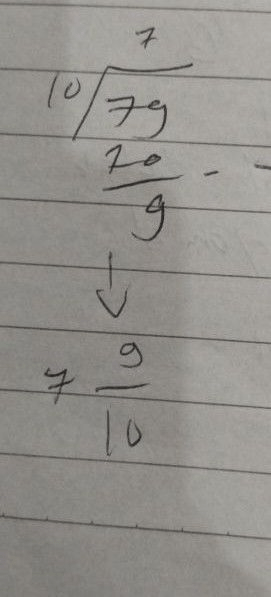 7
10/79
70 -
9
↓
7 9/10